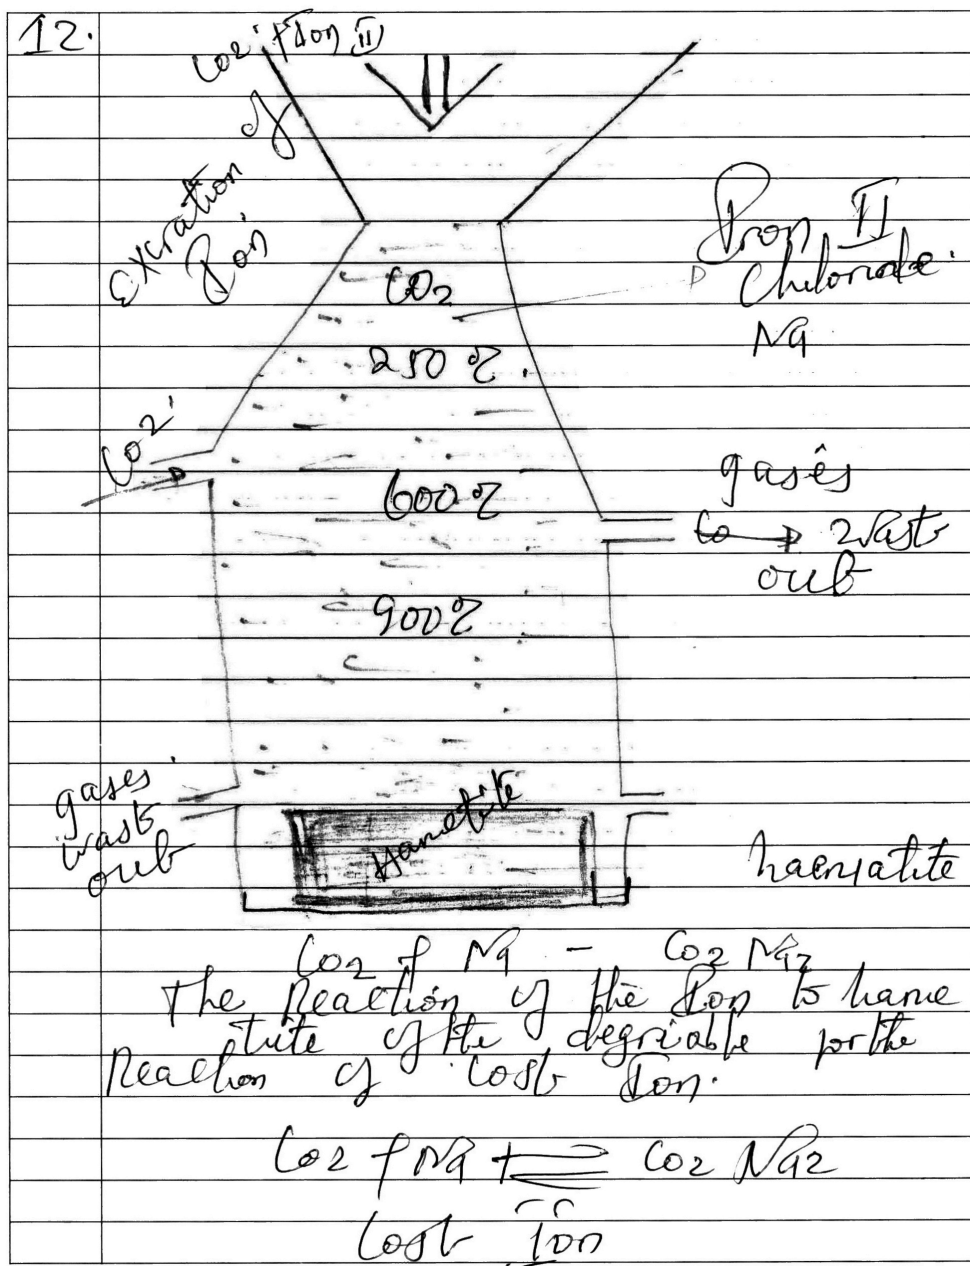 12.
Co2 + Iron II
Excration of
Ion
CO2
Iron II
Chilorade.
Na
250℃.
Co2
600℃
gases
Co → wast
out
900℃
gases
wast
out
Hametite
haematite
Co2 + Na - Co2 Na2
The Reaction of the Ion to hame
tite of the degriable for the
Reaction of Cost Ion.
Co2 + Na + ⇌ Co2 Na2
Cost Ion